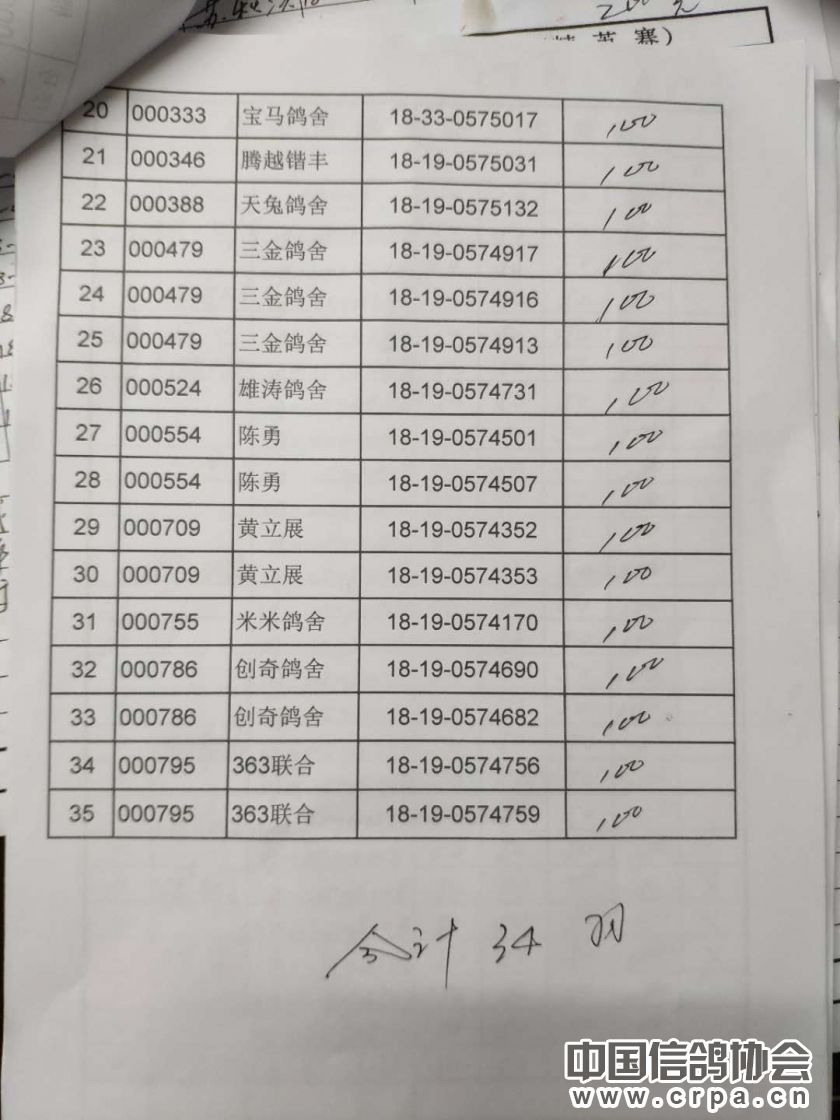 200元
英赛)
20 000333 宝马鸽舍 18-33-0575017 100
21 000346 腾越锴丰 18-19-0575031 100
22 000388 天兔鸽舍 18-19-0575132 100
23 000479 三金鸽舍 18-19-0574917 100
24 000479 三金鸽舍 18-19-0574916 100
25 000479 三金鸽舍 18-19-0574913 100
26 000524 雄涛鸽舍 18-19-0574731 100
27 000554 陈勇 18-19-0574501 100
28 000554 陈勇 18-19-0574507 100
29 000709 黄立展 18-19-0574352 100
30 000709 黄立展 18-19-0574353 100
31 000755 米米鸽舍 18-19-0574170 100
32 000786 创奇鸽舍 18-19-0574690 100
33 000786 创奇鸽舍 18-19-0574682 100
34 000795 363联合 18-19-0574756 100
35 000795 363联合 18-19-0574759 100
合计 34 羽
中国信鸽协会
www.crpa.cn